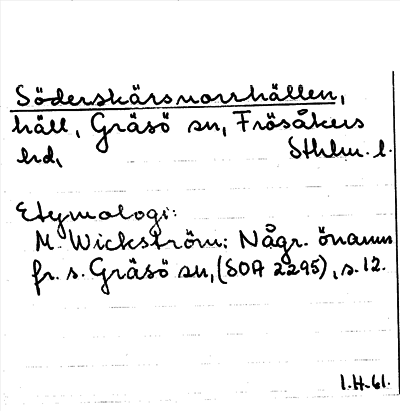 Söderskärsnorrhällen,
häll, Gräsö sn, Frösåkers
hd, Sthlm. l.
Etymologi:
M. Wickström: Någr. önamn
fr. s. Gräsö sn, (SOA 2295), s. 12.
I.H.-61.